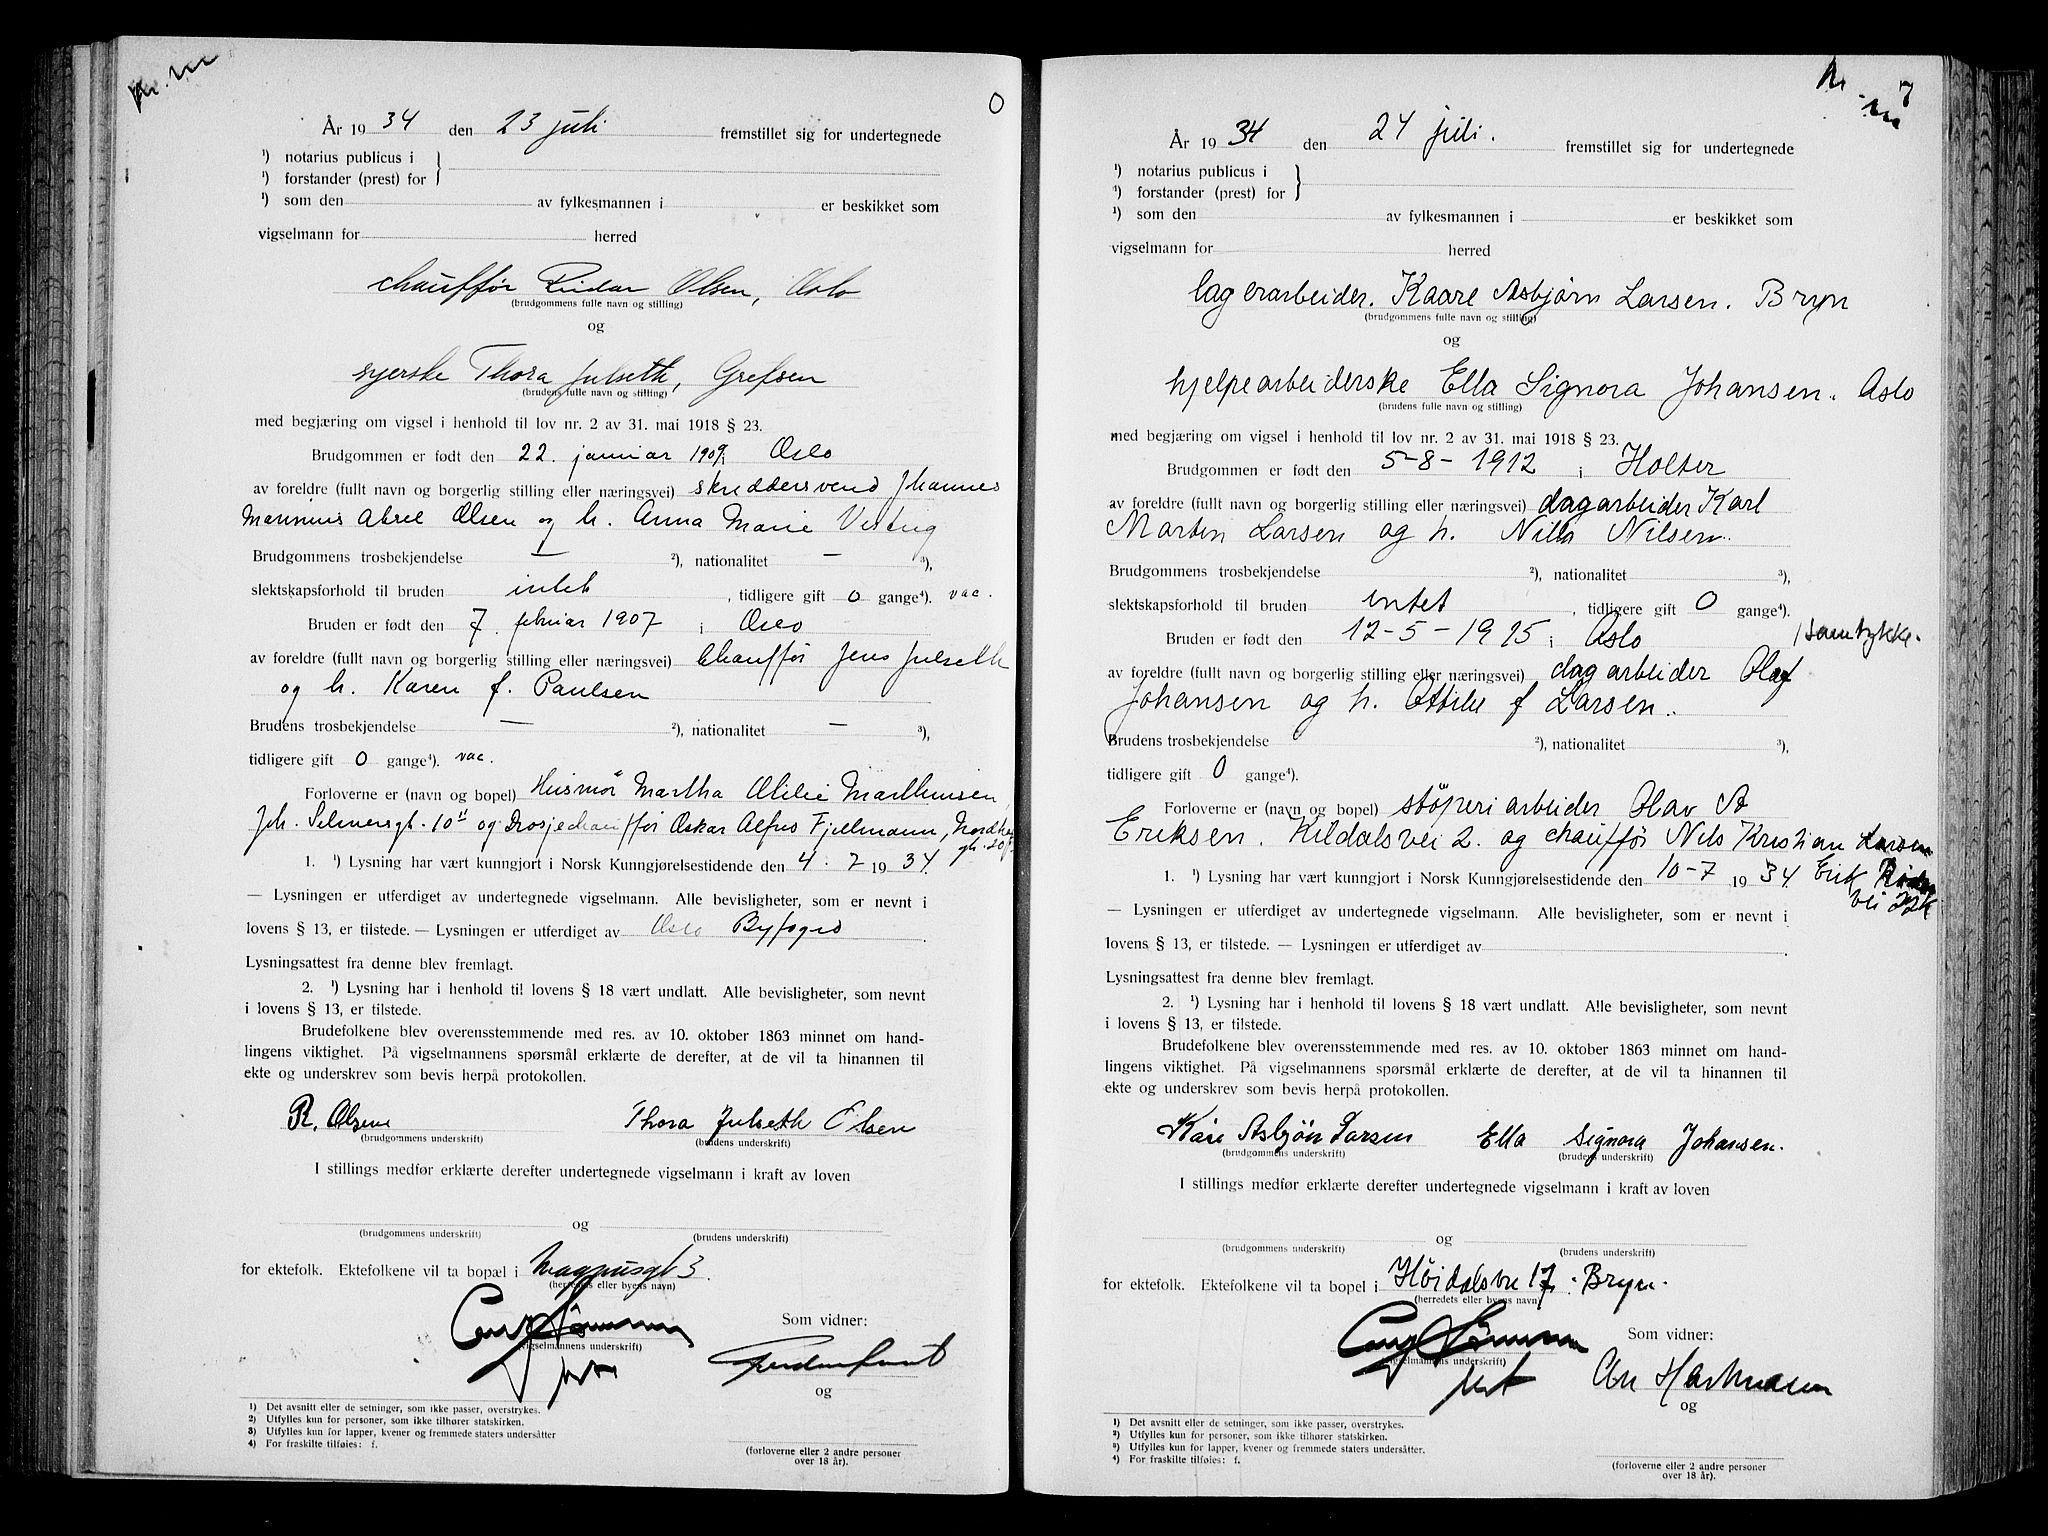 0
År 1934 den 23 juli fremstillet sig for undertegnede
¹) notarius publicus i
¹) forstander (prest) for
¹) som den av fylkesmannen i er beskikket som
vigselmann for herred
chauffør Reidar Olsen, Oslo
(brudgommens fulle navn og stilling)
og
syerske Thora Julseth, Grefsen
(brudens fulle navn og stilling)
med begjæring om vigsel i henhold til lov nr. 2 av 31. mai 1918 § 23.
Brudgommen er født den 22. januar 1909 i Oslo
av foreldre (fullt navn og borgerlig stilling eller næringsvei) skreddersvend Johannes
Marinius Aksel Olsen og h. Anna Marie
Brudgommens trosbekjendelse — ²), nationalitet — ³),
slektskapsforhold til bruden intet, tidligere gift 0 gange⁴). vac.
Bruden er født den 7. februar 1907 i Oslo
av foreldre (fullt navn og borgerlig stilling eller næringsvei) Chauffør Jens Julseth
og h. Karen f. Paulsen
Brudens trosbekjendelse — ²), nationalitet — ³),
tidligere gift 0 gange⁴). vac.
Forloverne er (navn og bopel) Husmor Martha Otilie Marthinsen,
Joh. Selmersgt. 10 II og Drosjechauffør Oskar Alfus Fjellmann,
gt. 20
1. ¹) Lysning har vært kunngjort i Norsk Kunngjørelsestidende den 4. 7 1934.
— Lysningen er utferdiget av undertegnede vigselmann. Alle bevisligheter, som er nevnt i
lovens § 13, er tilstede. — Lysningen er utferdiget av Oslo Byfogd.
Lysningsattest fra denne blev fremlagt.
2. ¹) Lysning har i henhold til lovens § 18 vært undlatt. Alle bevisligheter, som nevnt
i lovens § 13, er tilstede.
Brudefolkene blev overensstemmende med res. av 10. oktober 1863 minnet om hand-
lingens viktighet. På vigselmannens spørsmål erklærte de derefter, at de vil ta hinannen til
ekte og underskrev som bevis herpå protokollen.
R. Olsen Thora Julseth Olsen
(brudgommens underskrift) (brudens underskrift)
I stillings medfør erklærte derefter undertegnede vigselmann i kraft av loven
og
(brudgommens underskrift) (brudens underskrift)
for ektefolk. Ektefolkene vil ta bopæl i Magnusgt 3.
(herredets eller byens navn)
Som vidner:
(vigselmannens underskrift)
og
¹) Det avsnitt eller de setninger, som ikke passer, overstrykes.
²) Utfylles kun for personer, som ikke tilhører statskirken.
³) Utfylles kun for lapper, kvener og fremmede staters undersåtter
⁴) For fraskilte tilføies: f.
(forloverne eller 2 andre personer
over 18 år).
7
År 1934 den 24 juli. fremstillet sig for undertegnede
¹) notarius publicus i
¹) forstander (prest) for
¹) som den av fylkesmannen i er beskikket som
vigselmann for herred
lagerarbeider. Kaare Asbjørn Larsen. Bryn
(brudgommens fulle navn og stilling)
og
hjelpearbeiderske Ella Signora Johansen. Oslo
(brudens fulle navn og stilling)
med begjæring om vigsel i henhold til lov nr. 2 av 31. mai 1918 § 23.
Brudgommen er født den 5-8-1912 i Holter
av foreldre (fullt navn og borgerlig stilling eller næringsvei) dagarbeider Karl
Martin Larsen og h. Nilla Nilsen.
Brudgommens trosbekjendelse ²), nationalitet ³),
slektskapsforhold til bruden intet, tidligere gift 0 gange⁴).
Bruden er født den 12-5-1915 i Oslo / samtykke.
av foreldre (fullt navn og borgerlig stilling eller næringsvei) dagarbeider Olaf
Johansen og h. Ottilie f Larsen.
Brudens trosbekjendelse ²), nationalitet ³),
tidligere gift 0 gange⁴).
Forloverne er (navn og bopel) støperiarbeider Olav A
Eriksen. Kildalsvei 2. og chauffør Nils Kristian Larsen
1. ¹) Lysning har vært kunngjort i Norsk Kunngjørelsestidende den 10-7 1934. Erik
vei
— Lysningen er utferdiget av undertegnede vigselmann. Alle bevisligheter, som er nevnt i
lovens § 13, er tilstede. — Lysningen er utferdiget av
Lysningsattest fra denne blev fremlagt.
2. ¹) Lysning har i henhold til lovens § 18 vært undlatt. Alle bevisligheter, som nevnt
i lovens § 13, er tilstede.
Brudefolkene blev overensstemmende med res. av 10. oktober 1863 minnet om hand-
lingens viktighet. På vigselmannens spørsmål erklærte de derefter, at de vil ta hinannen til
ekte og underskrev som bevis herpå protokollen.
Kåre Asbjørn Larsen Ella Signora Johansen.
(brudgommens underskrift) (brudens underskrift)
I stillings medfør erklærte derefter undertegnede vigselmann i kraft av loven
og
(brudgommens underskrift) (brudens underskrift)
for ektefolk. Ektefolkene vil ta bopel i Høidalsvei 17. Bryn.
(herredets eller byens navn)
Som vidner:
(vigselmannens underskrift)
og
¹) Det avsnitt eller de setninger, som ikke passer, overstrykes.
²) Utfylles kun for personer, som ikke tilhører statskirken.
³) Utfylles kun for lapper, kvener og fremmede staters undersåtter.
⁴) For fraskilte tilføies: f.
(forloverne eller 2 andre personer
over 18 år).